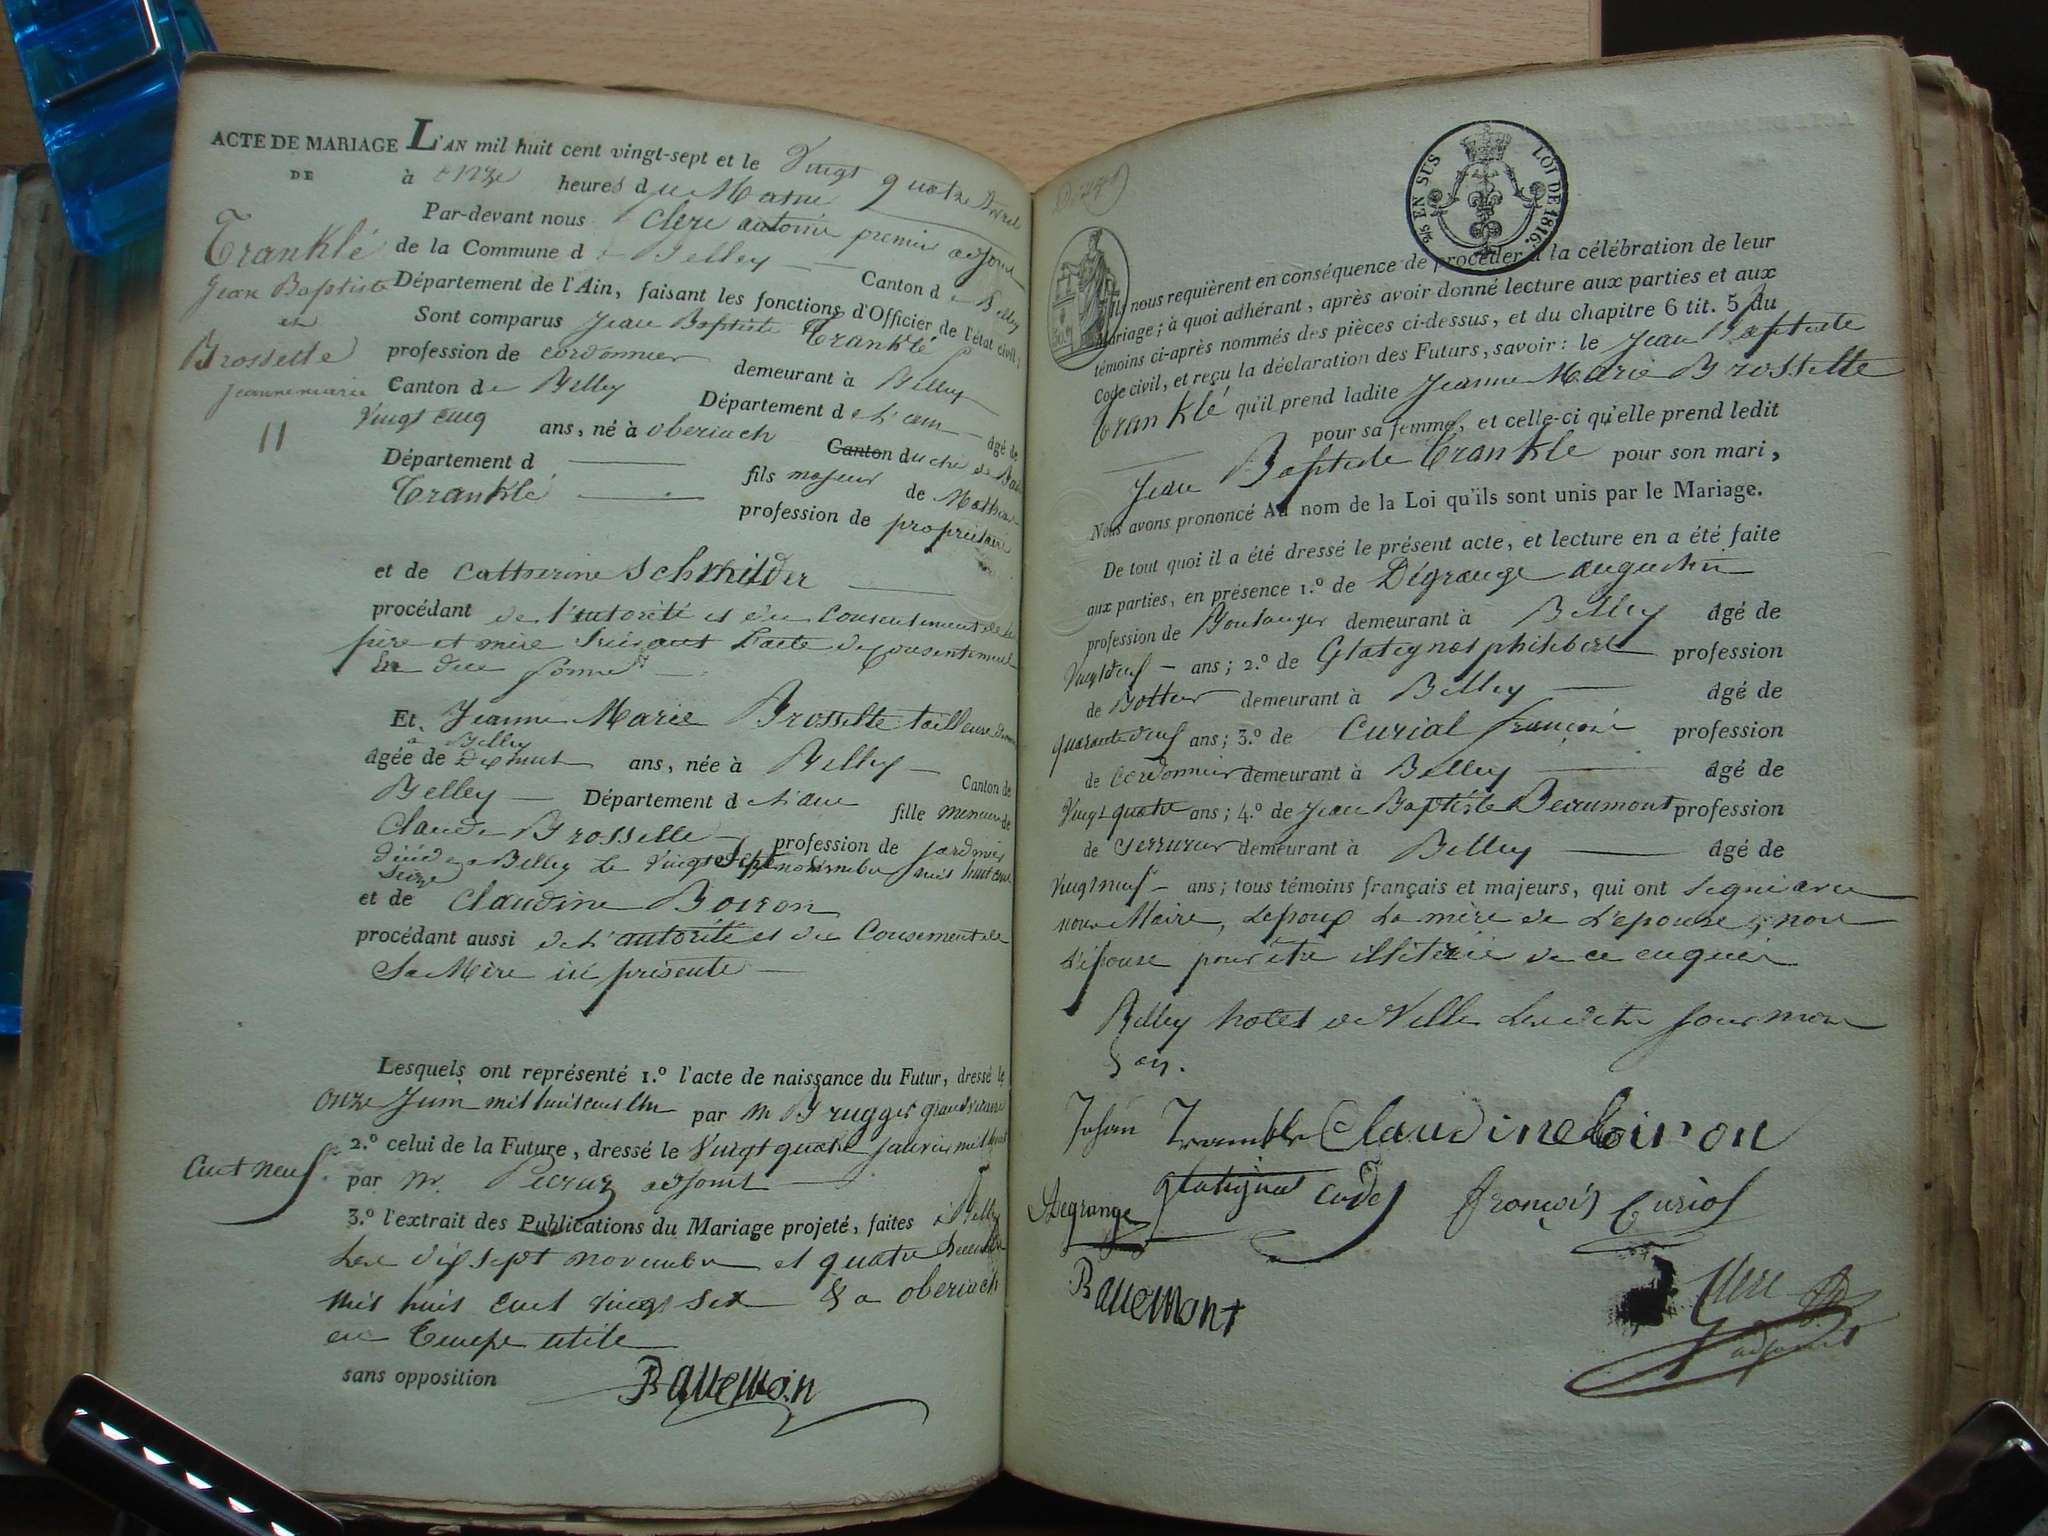 ACTE DE MARIAGE
DE
Tranklé
Jean Baptiste
et
Brosselte
jeannemarie
11
L'AN mil huit cent vingt-sept et le Vingt quatre Avril
à onze heures du Matin
Par-devant nous Clerc antoine premier adjoint
de la Commune de Belley Canton de Belley
Département de l'Ain, faisant les fonctions d'Officier de l'état civil;
Sont comparus Jean Baptiste Tranklé
profession de cordonnier demeurant à Belley
Canton de Belley Département de l'ain âgé de
Vingt cinq ans, né à oberiach Canton duché de Bade
Département d fils majeur de Mathias
Tranklé profession de propriétaire
et de Catherine Schmilder
procédant de l'autorité et du Consentement de ses
père et mère suivant l'acte de consentement
En due forme
Et Jeanne Marie Brosselte tailleuse
à Belley
âgée de Dix huit ans, née à Belley Canton de
Belley Département de l'ain fille mineure de
Claude Brosselle profession de jardinier
décédé a Belley Le Vingt sept novembre mil huit cent
Seize
et de Claudine Boiron
procédant aussi de l'autorité et du Consentement de
Sa Mère ici présente
Lesquels ont représenté 1.º l'acte de naissance du Futur, dressé le
Onze Juin mil huit cent un par Mr Brugger grand vicaire
2.º celui de la Future, dressé le Vingt quatre janvier mil huit
Cent neuf par Mr adjoint
3.º l'extrait des Publications du Mariage projeté, faites à Belley
Les dix sept novembre et quatre Decembre
mil huit cent vingt six & a oberiach
en Temps utile
sans opposition
Bauemon
2/5 EN SUS LOI DE 1816.
Ils nous requièrent en conséquence de procéder à la célébration de leur
Mariage; à quoi adhérant, après avoir donné lecture aux parties et aux
témoins ci-après nommés des pièces ci-dessus, et du chapitre 6 tit. 5 du
Code civil, et reçu la déclaration des Futurs, savoir: le Jean Baptiste
Tranklé qu'il prend ladite Jeanne Marie Brosselte
pour sa femme, et celle-ci qu'elle prend ledit
Jean Baptiste Tranklé pour son mari,
Nous avons prononcé Au nom de la Loi qu'ils sont unis par le Mariage.
De tout quoi il a été dressé le présent acte, et lecture en a été faite
aux parties, en présence 1.º de Dégrange augustin
profession de Boulanger demeurant à Belley âgé de
Vingt neuf ans; 2.º de Glatignat philibert profession
de Bottier demeurant à Belley âgé de
quarante neuf ans; 3.º de Curial françois profession
de Cordonnier demeurant à Belley âgé de
Vingt quatre ans; 4.º de Jean Baptiste Beaumont profession
de Serrurier demeurant à Belley âgé de
Vingt neuf ans; tous témoins français et majeurs, qui ont signé avec
nous Maire, l'epoux La mère de L'epouse, non
L'épouse pour être illitérée de ce enquise
Belley hotel de Ville Lesdits jour mois
& an.
Johan Trankle Claudine boiron
Degrange glatignat cadet françois Curiol
Bauemont
Clerc
adjoint